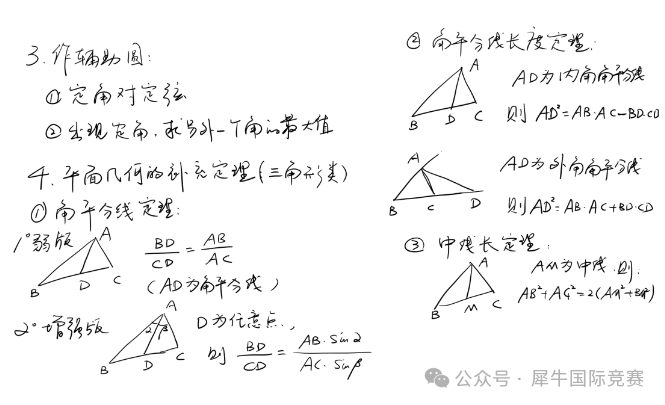 3. 作辅助圆:
① 定角对定弦
② 出现定角,求另外一个角的最大值
4. 平面几何的补充定理(三角形类)
① 角平分线定理:
1° 弱版
A
B D C
BD/CD = AB/AC
(AD为角平分线)
2° 增强版
A
α β
B D C
D为任意点,
则 BD/CD = AB·Sinα/AC·Sinβ
② 角平分线长度定理:
A
B D C
AD为内角角平分线
则 AD²=AB·AC-BD·CD
A
B C D
AD为外角角平分线
则AD²=AB·AC+BD·CD
③ 中线长定理:
A
B M C
AM为中线,则:
AB²+AC²=2(AM²+BM²)
公众号·犀牛国际竞赛